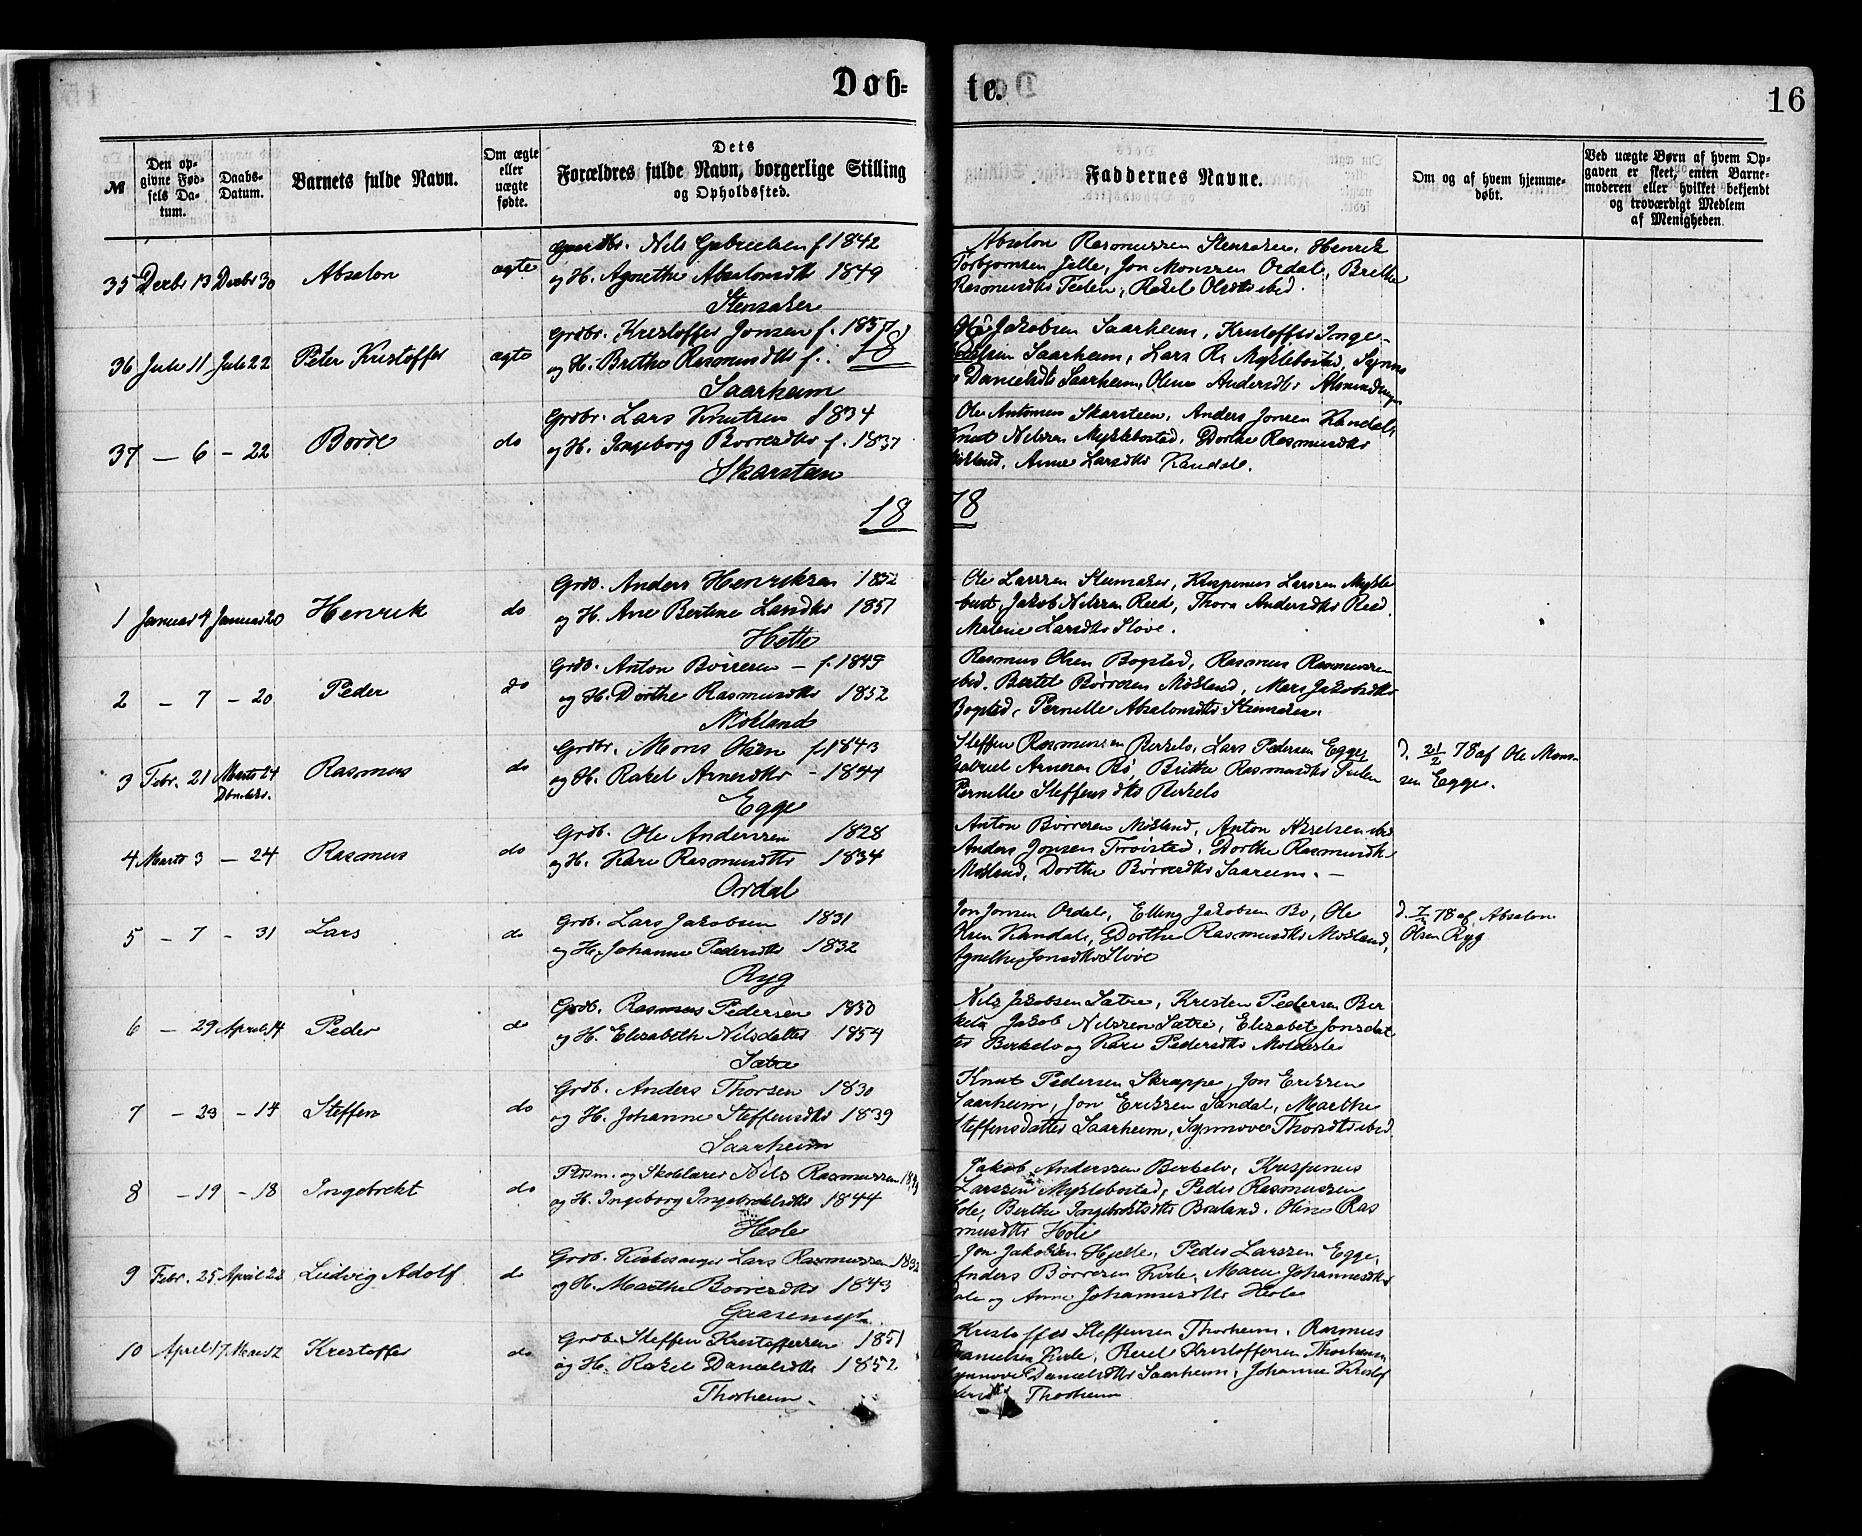 Døb-
te.
16
№
Den op-
givne Fød-
sels Da-
tum.
Daabs-
Datum.
Barnets fulde Navn.
Om ægte
eller
uægte
fødte.
Dets
Forældres fulde Navn, borgerlige Stilling
og Opholdssted.
Faddernes Navne.
Om og af hvem hjemme-
døbt.
Ved uægte Børn af hvem Op-
gaven er skeet, enten Barne-
moderen eller hvilket bekjendt
og troværdigt Medlem
af Menigheden.
35 Decbr 13 Decbr 30 Absalon ægte
Nils Gabrielsen f 1842
og H. Agnethe Absalonsdtr 1849
Stensaker
Absalon Rasmussen Stensaker, Henrik
Torbjørnsen Jelle, Jon Monssen Ordal, Brithe
Rasmusdtr Feden, Rakel Olsdtr ibid.
36 Juli 11 Juli 22 Peter Kristoffer ægte
Grdbr. Kristoffer Jonsen f. 1857
og H. Brithe Rasmusdtr f.
Saarheim
18
Ole Jakobsen Saarheim, Kristoffer Inge-
Saarheim, Lars Rs Myklebostad, Synne
Danielsdtr Saarheim, Oline Andersdtr
37 — 6 – 22 Børre do
Grdbr. Lars Knutsen 1834
og H. Ingeborg Børresdtr f. 1837
Skarsten
Ole Antonsen Skarsteen, Anders Jonsen Kandal,
Knut Nilssen Myklebostad, Dorthe Rasmusdtr
Anne Larsdtr Kandal.
18
78
1 Januar 4 Januar 20 Henrik do
Grdb. Anders Henriksen 1852
og H. Ane Bertine Larsdtr 1851
Hetle
Ole Larssen Stensaker, Krispenus Larssen Mykle
bust, Jakob Nilssen Reed, Thora Andersdtr Reed
Malene Larsdtr Støve.
2 – 7 – 20 Peder do
Grdb. Anton Børresen – f. 1849
og H. Dorthe Rasmusdtr 1852
Mokland
Rasmus Olsen Bogstad, Rasmus Rasmussen
ibid. Bertel Børresen Mokland, Mari Jakobsdtr
Bogstad, Pernille Absalonsdtr Stensaker.
3 Febr. 21 Marts 24 Rasmus do
Grdbr. Mons Olsen f. 1843
og H. Rakel Arnesdtr – 1844
Egge
Steffen Rasmussen Birkelo, Lars Pedersen Egge,
Gabriel Arnesen Bø, Brithe Rasmusdtr Felen
Pernille Steffensdtr Birkelo
d. 21/2 78 af Ole Mons-
sen Egge.
4 Marts 3 – 24 Rasmus do
Grdb. Ole Anderssen 1828
og H. Kari Rasmusdtr 1834
Ordal
Anton Børresen Mokland, Anton Nielsen ibid
Anders Jonsen Trøistad, Dorthe Rasmusdtr
Mokland, Dorthe Børresdtr Saareim. —
5 – 7 – 31 Lars do
Grdb. Lars Jakobsen 1831
og H. Johanne Pedersdtr 1832
Ryg
Jon Jonsen Ordal, Elling Jakobsen Bø, Ole
Olsen Kandal, Dorthe Rasmusdtr Mokland,
Agnethe Jonsdtr Støve
d. 7/3 78 af Absalon
Olsen Ryg
6 – 29 April 14 Peder do
Grdb. Rasmus Pedersen 1830
og H. Elisabeth Nilsdatter 1854
Sætre
Nils Jakobsen Sætre, Kristen Pedersen Bir
kelo Jakob Nilssen Sætre, Elisabet Jonsdat
ter Birkelo og Kari Pedersdtr Molderste
7 – 23 – 14 Steffen do
Grdb. Anders Thorsen 1830
og H. Johanne Steffensdtr 1839
Saarheim
Knut Pedersen Skrappe, Jon Eriksen
Saarheim, Jon Eriksen Sandal, Marthe
Steffensdatter Saarheim, Synnøve Thorsdtr ibid.
8 – 19 – 18 Ingebrekt do
og Skolelærer Nils Rasmussen
og H. Ingeborg Ingebrektsdtr 1844
Hole
Jakob Anderssen Birkelo, Krispenus
Larssen Myklebostad, Peder Rasmussen
Hole, Berthe Ingebrektsdtr Bouland. Oline Ras
musdtr Hole
9 Febr. 25 April 22 Ludvig Adolf do
Grdb. Kirkesanger Lars Rasmussen 1832
og H. Marthe Børresdtr 1843
Gaasemyr
Jon Jakobsen Hjelle, Peder Larssen Egge,
Anders Børresen Kirle, Marie Johannesdtr
Hole og Anne Johannesdtr Hole
10 April 17 Mai 12 Kristoffer do
Grdb. Steffen Kristoffersen 1851
og H. Rakel Danielsdtr 1852
Thorheim.
Kristoffer Steffensen Thorheim, Rasmus
Danielsen Kirle, Reiel Kristoffersen Thorheim,
Synnøve Danielsdtr Saarheim, Johanne Kristof
fersdtr Thorheim